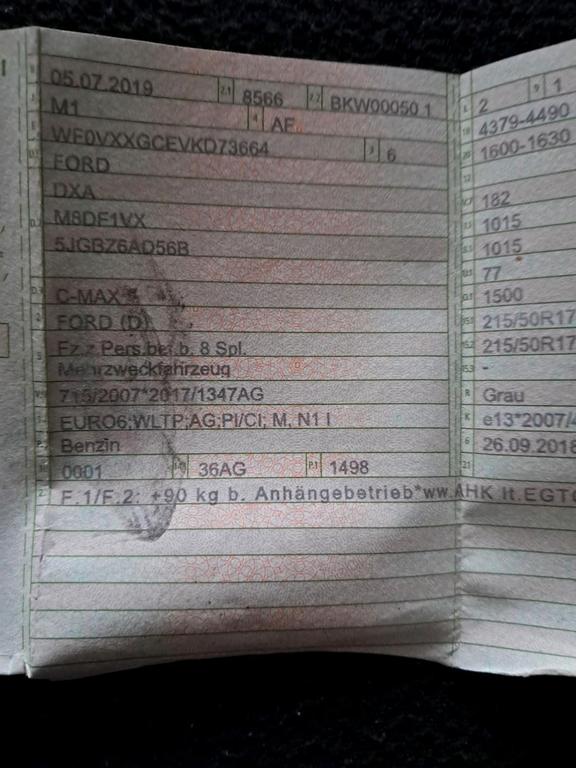 05.07.2019 2.1 8566 2.2 BKW00050 1
M1 4 AF
WF0VXXGCEVKD73664 3 6
FORD
DXA
M8DF1VX
5JGBZ6AD56B
C-MAX
FORD (D)
Fz.z.Pers.bef.b. 8 Spl.
Mehrzweckfahrzeug
715/2007*2017/1347AG
EURO6;WLTP;AG;PI/CI; M, N1 I
Benzin
0001 36AG P.1 1498
F.1/F.2: +90 kg b. Anhängebetrieb*ww.AHK lt.EGT
2 9 1
4379-4490
1600-1630
182
1015
1015
77
1500
215/50R17
215/50R17
-
R Grau
K e13*2007/4
6 26.09.2018
21